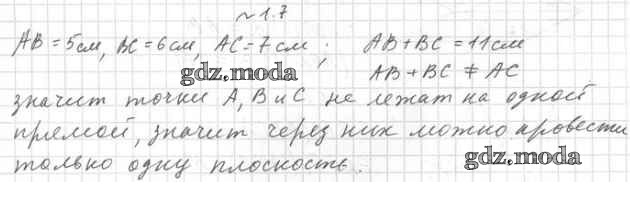 ~ 1.7
AB = 5см, BC = 6см, AC = 7см ; AB + BC = 11см
gdz.moda
AB + BC ≠ AC
значит точки A, B и C не лежат на одной
прямой, значит через них можно провести
только одну плоскость.
gdz.moda